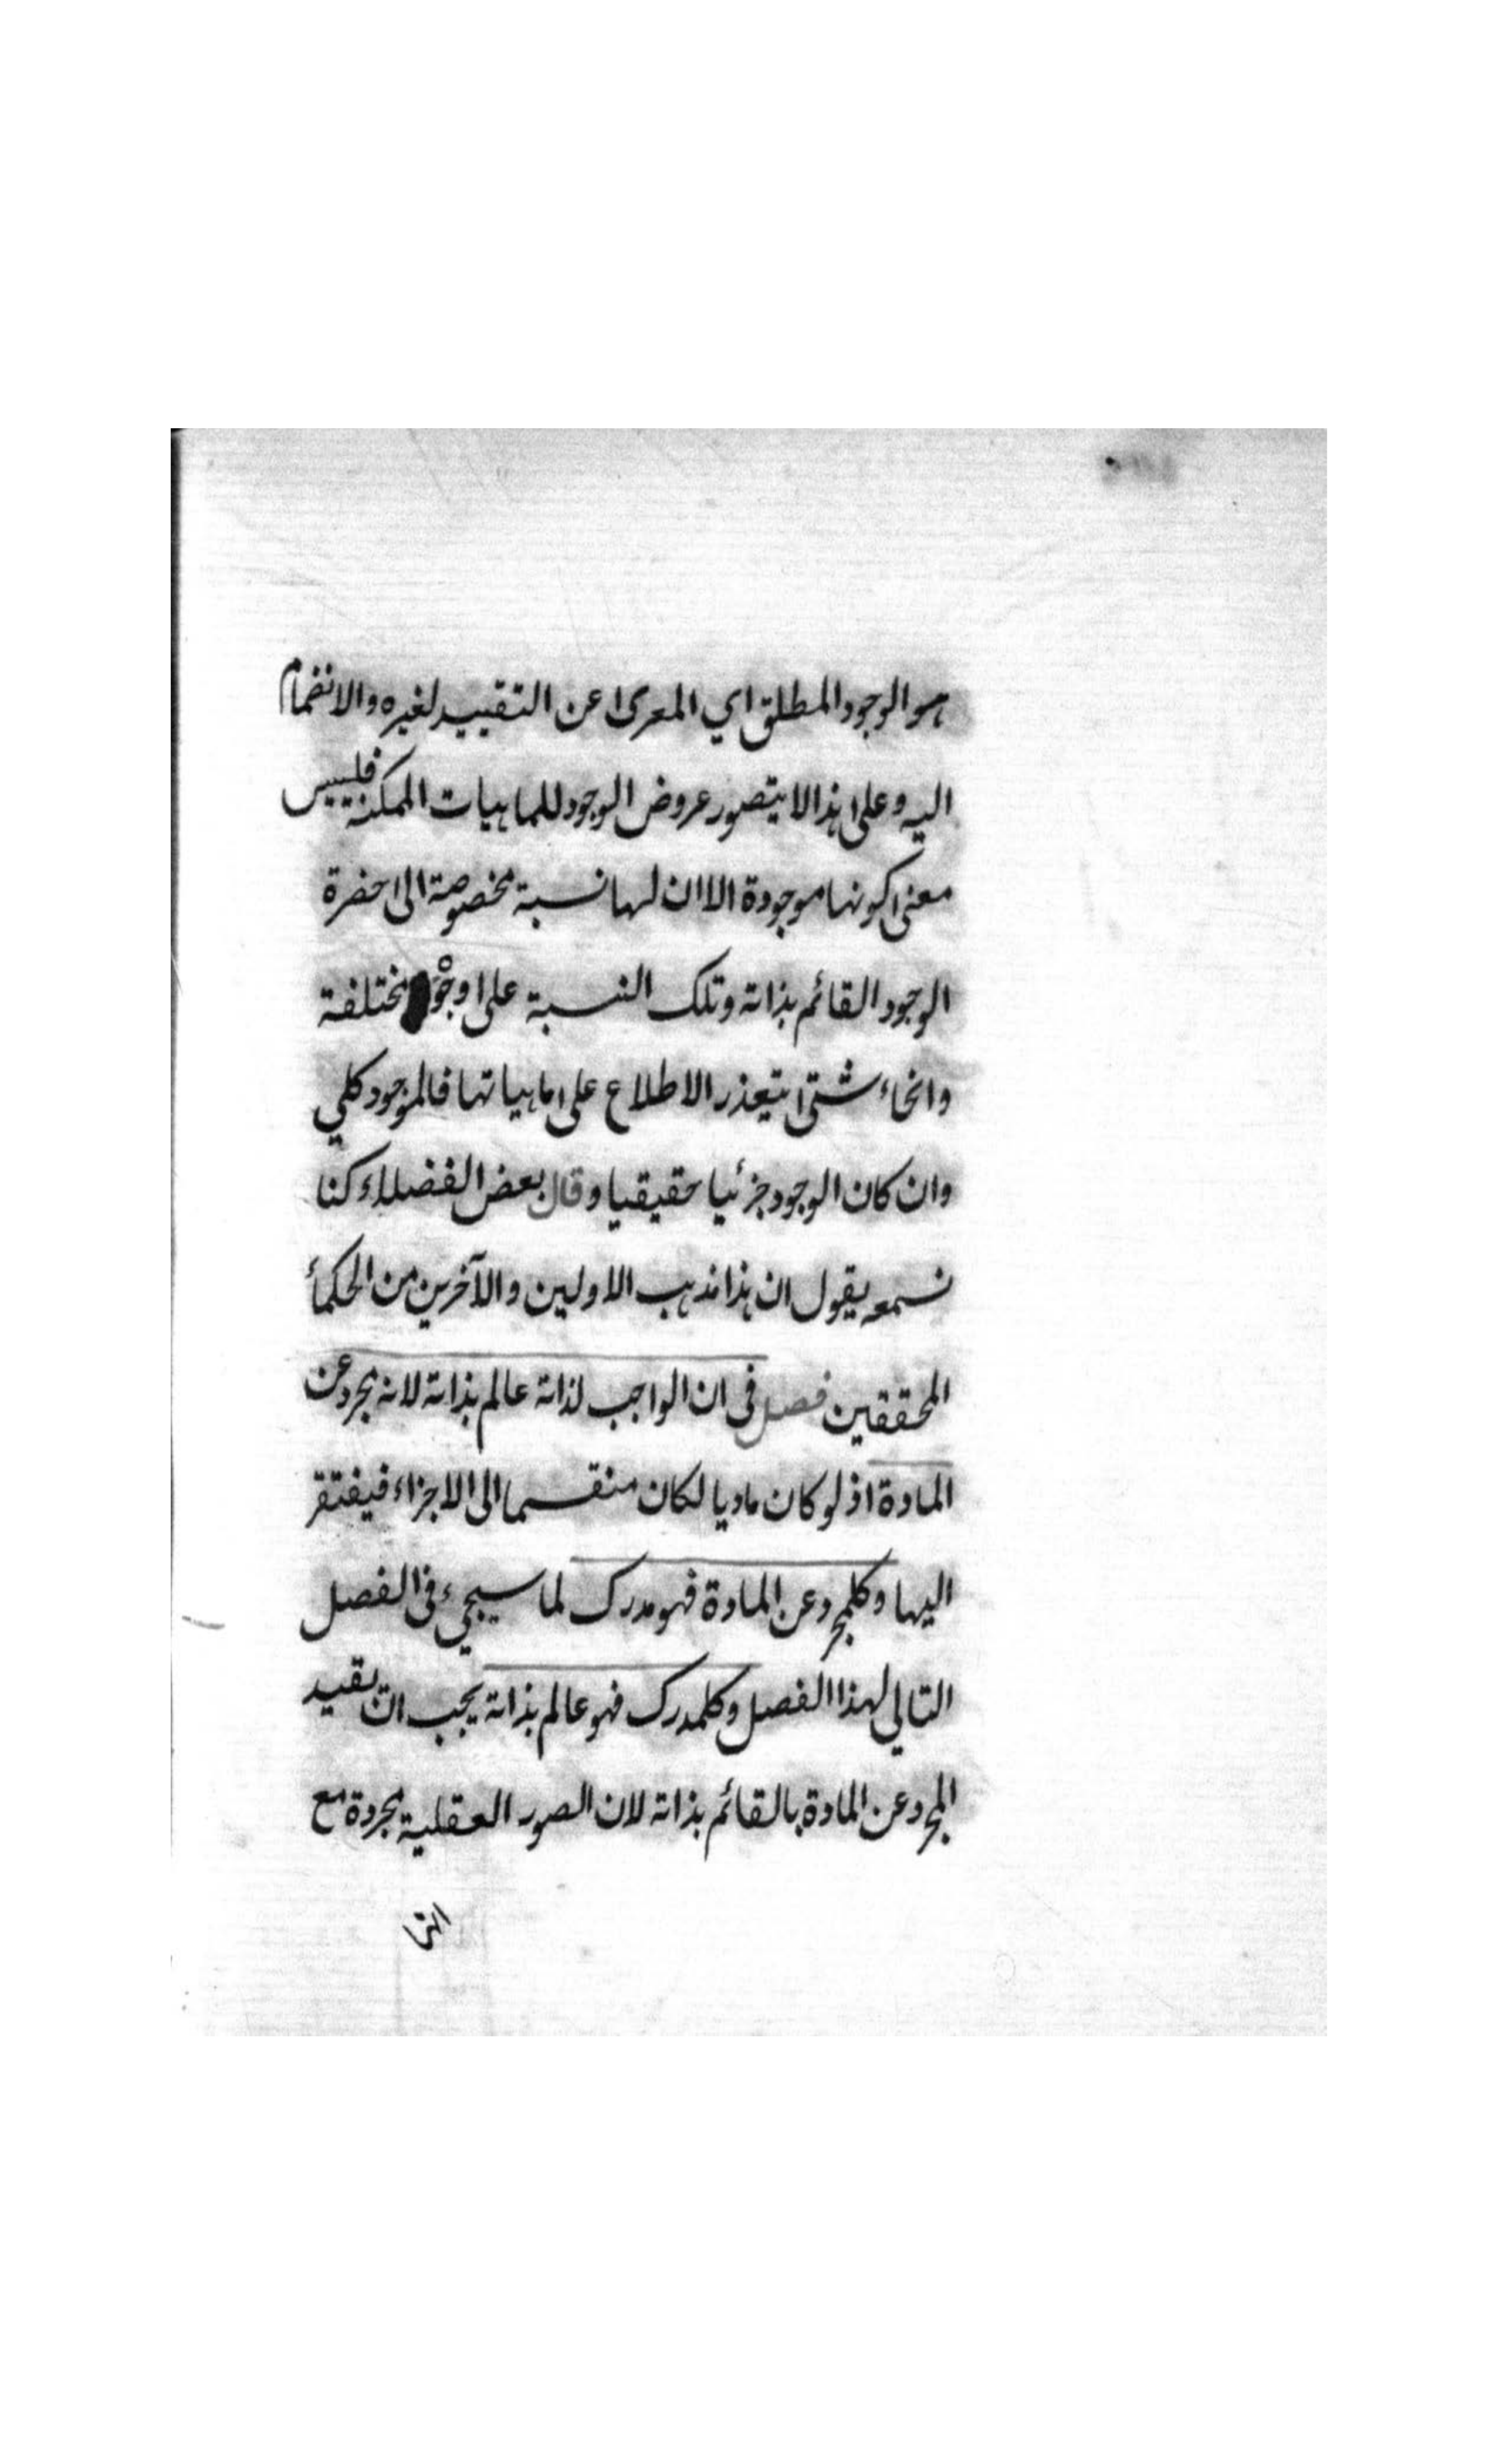 هو الوجود المطلق اي المعرى عن التقييد لغيره والانضمام
اليه وعلى هذا لا يتصور عروض الوجود للماهيات الممكنة فليس
معنى كونها موجودة الا ان لها نسبة مخصوصة الى حضرة
الوجود القائم بذاته وتلك النسبة على وجوه مختلفة
وانحاء شتى يتعذر الاطلاع على ماهياتها فالموجود كلي
وان كان الوجود جزئيا حقيقيا وقال بعض الفضلاء كنا
نسمعه يقول ان هذا مذهب الاولين والآخرين من الحكماء
المحققين فصل في ان الواجب لذاته عالم بذاته لانه مجرد عن
المادة اذ لو كان ماديا لكان منقسما الى الاجزاء فيفتقر
اليها وكلمجرد عن المادة فهو مدرك لما سيجيء في الفصل
التالي لهذا الفصل وكلمدرك فهو عالم بذاته يجب ان يقيد
المجرد عن المادة بالقائم بذاته لان الصور العقلية مجردة مع